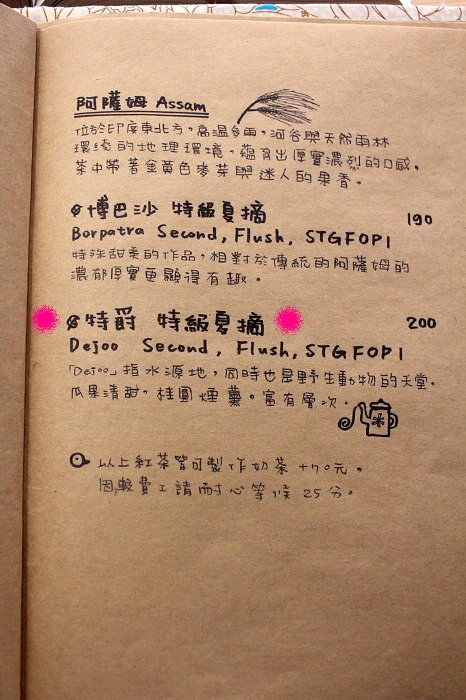 阿薩姆 Assam
位於印度東北方，高溫多雨，河谷與天然雨林
環繞的地理環境，蘊育出厚實濃烈的口感，
茶中帶著金黃色麥芽與迷人的果香。
博巴沙 特級夏摘 190
Borpatra Second, Flush, STGFOP1
特殊甜美的作品，相對於傳統的阿薩姆的
濃郁厚實更顯得有趣。
特爵 特級夏摘 200
Dejoo Second, Flush, STGFOP1
「Dejoo」指水源地，同時也是野生動物的天堂。
瓜果清甜，桂圓煙薰。富有層次。
以上紅茶皆可製作奶茶+70元，
因較費工請耐心等候 25分。